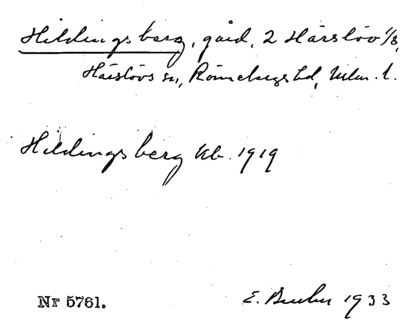 Hildingsberg, gård, 2 Härslöv 1/8,
Härslövs sn, Rönnebergs hd, Mlm. l.
Hildingsberg kb. 1919
Nr 5761.
E. 1933